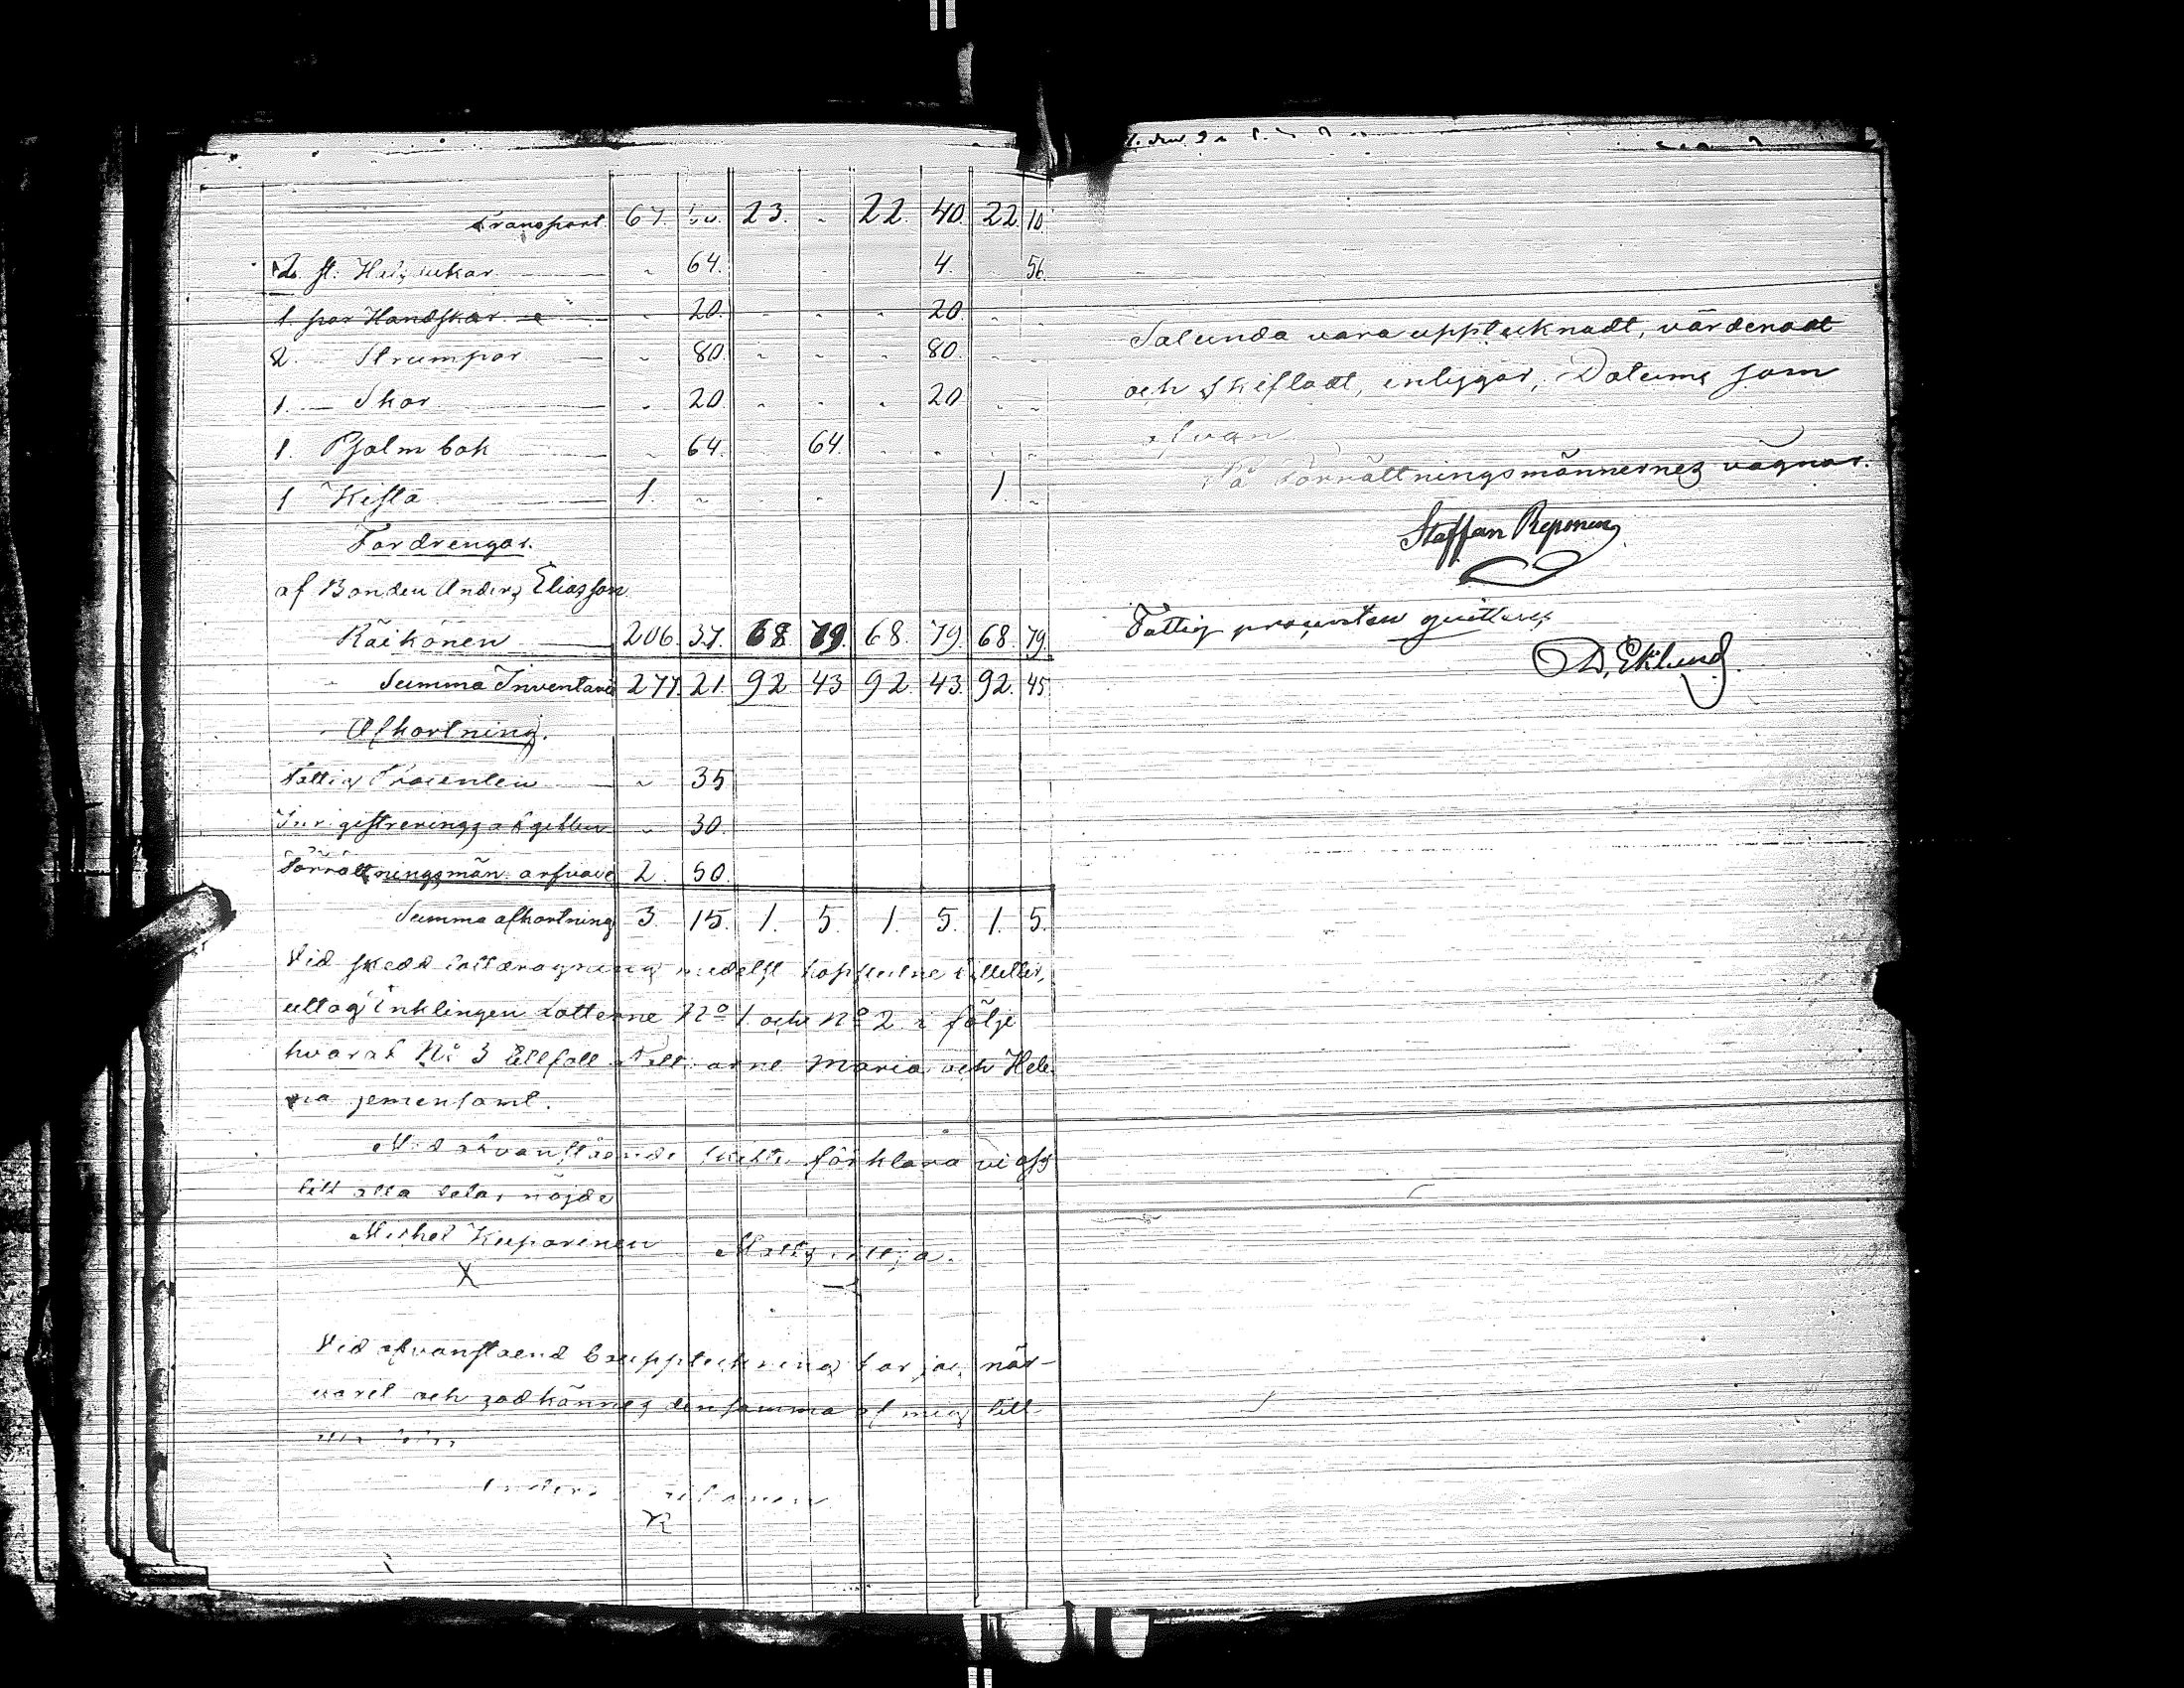 Transport. 67. 23. " 22. 40. 22. 10.
2 st. Halsdukar " 64. 4. 56.
1. par Handskar " 20. " " " 20. " "
2. — Strumpor " 80. " " " 80. " "
1. — Skor " 20. " " " 20 " "
1. Psalm bok " 64. 64. " " " "
1 Kista 1. " " " 1. "
Fordrengar.
af Bonden Anders Eliasson
Räikönen 206. 37. 68. 79. 68. 79. 68. 79.
Summa Inventarie 277. 21. 92 43 92. 43. 92. 45
Afkortning.
Fattig Procenten " 35
Inregistrerings afgiften " 30.
Förrättningsmän arfvode 2. 50.
Summa afkortning 3. 15. 1. 5. 1. 5. 1. 5.
Vid skedd lottdragning medelst
uttog Enklingen Lotterne No 1 och No 2 i följe
hvaraf No 3 tillföll Maria och Hele
na jemensamt.
Med ofvanstående skifte förklara vi oss
till alla delar nöjde
Michel Kuparinen Matts
X
Vid ofvanstaend bouppteckning har jag när-
varit och godkännes densamma af mig till
Anders
Salunda vara upptecknadt, värderadt
och skiftadt, intygar, Datums som
ofvan
På Förrättningsmännernes vägnar.
Staffan Reponen
Fattig procenten quitteras
D. Eklund.